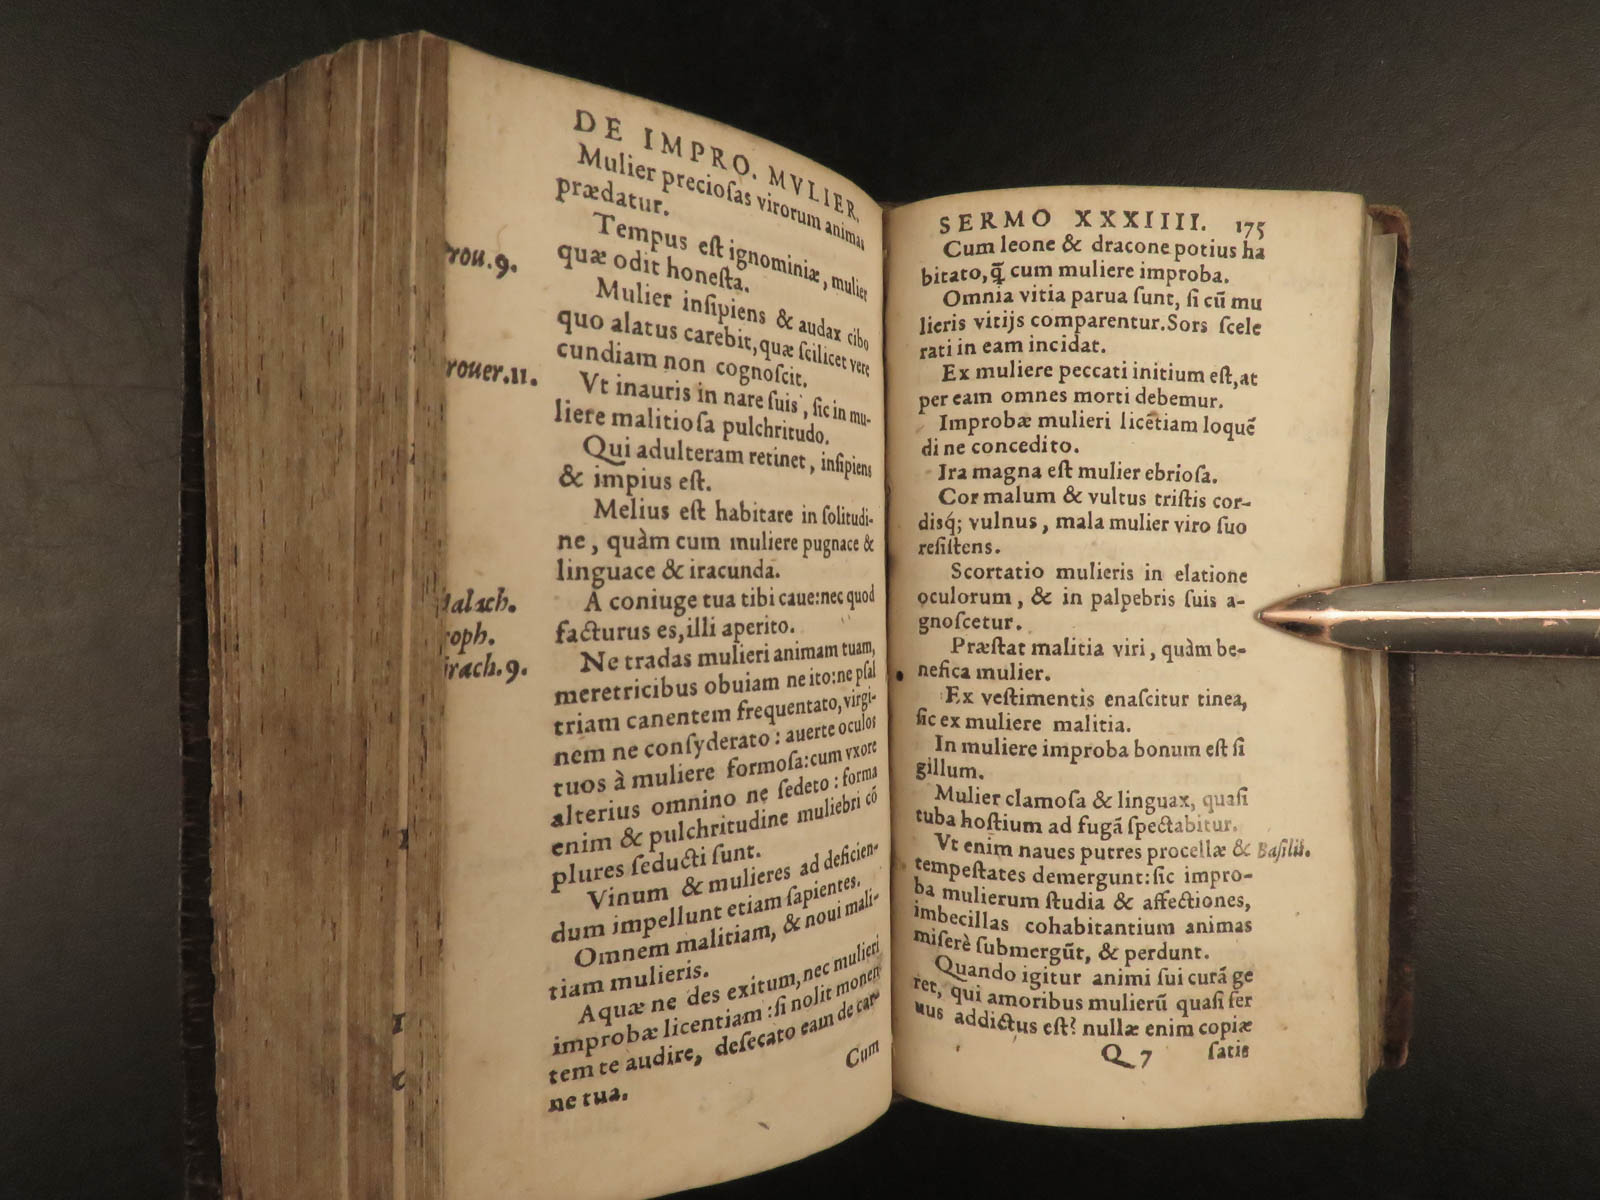 DE IMPRO. MVLIER.
Mulier precioſas virorum animas
prædatur.
Tempus eſt ignominiæ, mulier
rou.9.
quæ odit honeſta.
Mulier inſipiens & audax cibo
quo alatus carebit, quæ ſcilicet vere
cundiam non cognoſcit.
rouer.11.
Vt inauris in nare ſuis, ſic in mu-
liere malitioſa pulchritudo.
Qui adulteram retinet, inſipiens
& impius eſt.
Melius eſt habitare in ſolitudi-
ne, quàm cum muliere pugnace &
linguace & iracunda.
alach.
A coniuge tua tibi caue: nec quod
roph.
facturus es, illi aperito.
irach.9.
Ne tradas mulieri animam tuam,
meretricibus obuiam ne ito: ne pſal
triam canentem frequentato, virgi-
nem ne conſyderato: auerte oculos
tuos à muliere formoſa: cum vxore
alterius omnino ne ſedeto: forma
enim & pulchritudine muliebri cõ
plures ſeducti ſunt.
Vinum & mulieres ad deficien-
dum impellunt etiam ſapientes.
Omnem malitiam, & noui mali-
tiam mulieris.
Aquæ ne des exitum, nec mulieri
improbæ licentiam: ſi nolit monen
tem te audire, deſecato eam de car-
ne tua.
Cum
SERMO XXXIIII. 175
Cum leone & dracone potius ha
bitato, q̃ cum muliere improba.
Omnia vitia parua ſunt, ſi cũ mu
lieris vitijs comparentur. Sors ſcele
rati in eam incidat.
Ex muliere peccati initium eſt, at
per eam omnes morti debemur.
Improbæ mulieri licẽtiam loquẽ
di ne concedito.
Ira magna eſt mulier ebrioſa.
Cor malum & vultus triſtis cor-
disq́; vulnus, mala mulier viro ſuo
reſiſtens.
Scortatio mulieris in elatione
oculorum, & in palpebris ſuis a-
gnoſcetur.
Præſtat malitia viri, quàm be-
nefica mulier.
Ex veſtimentis enaſcitur tinea,
ſic ex muliere malitia.
In muliere improba bonum eſt ſi
gillum.
Mulier clamoſa & linguax, quaſi
tuba hoſtium ad fugã ſpectabitur.
Vt enim naues putres procellæ & Baſilii.
tempeſtates demergunt: ſic impro-
ba mulierum ſtudia & affectiones,
imbecillas cohabitantium animas
miſerè ſubmergũt, & perdunt.
Quando igitur animi ſui curã ge
ret, qui amoribus mulierũ quaſi ſer
uus addictus eſt? nullæ enim copiæ
Q 7 ſatis